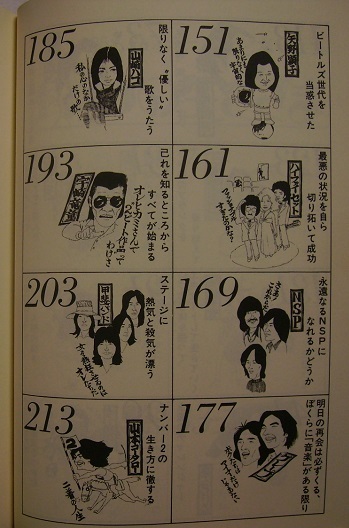 151
ビートルズ世代を
当惑させた
矢野顕子
161
最悪の状況を自ら
切り拓いて成功
ハイ・ファイ・セット
169
永遠なるNSPに
なれるかどうか
NSP
177
明日の再会は必ずくる、
ぼくらに「音楽」がある限り
185
限りなく“優しい”
歌をうたう
山崎ハコ
私の心のなか
だけの歌
193
己れを知るところから
すべてが始まる
宇崎竜童
203
ステージに
熱気と殺気が漂う
甲斐バンド
213
ナンバー2の
生き方に徹する
山本コータロー
二番の人生